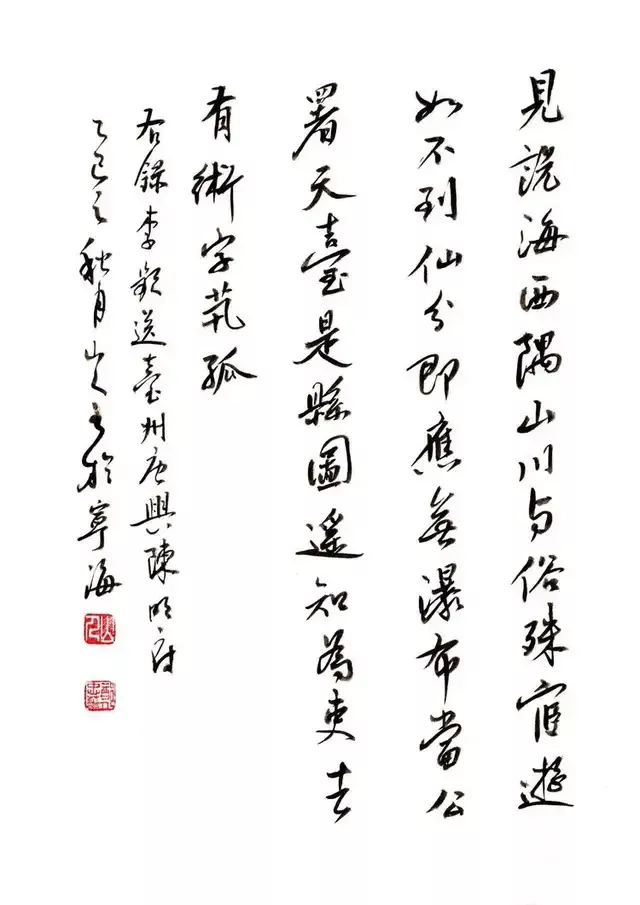 見説海西隅山川与俗殊宦遊
如不到仙分即應無瀑布當公
署天臺是縣圖遥知為吏去
有術字茕孤
右録李頻送臺州唐興陳明府
乙巳之秋月山人書於寧海